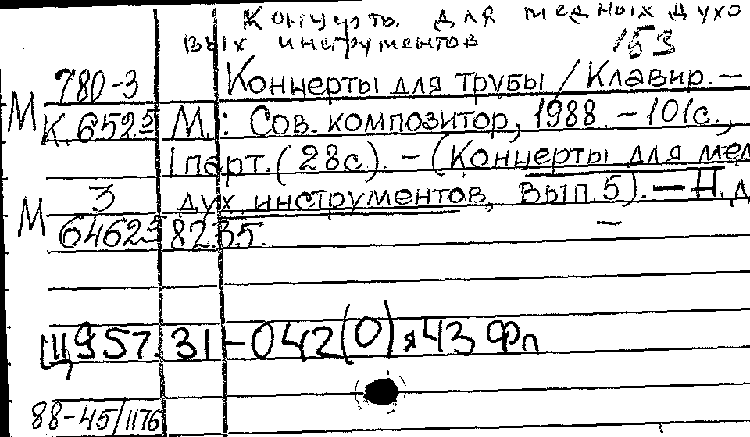 Концерты для медных духо
вых инструментов 153
780-3 Концерты для трубы / Клавир. –
М К.6525 М.: Сов. композитор, 1988. – 101с.,
1парт. (28с). – (Концерты для мед
М 3 дух. инструментов, вып. 5). – Н. д
64623 8235.
Щ957.31-042(0)я43 Фп
88-45/1176